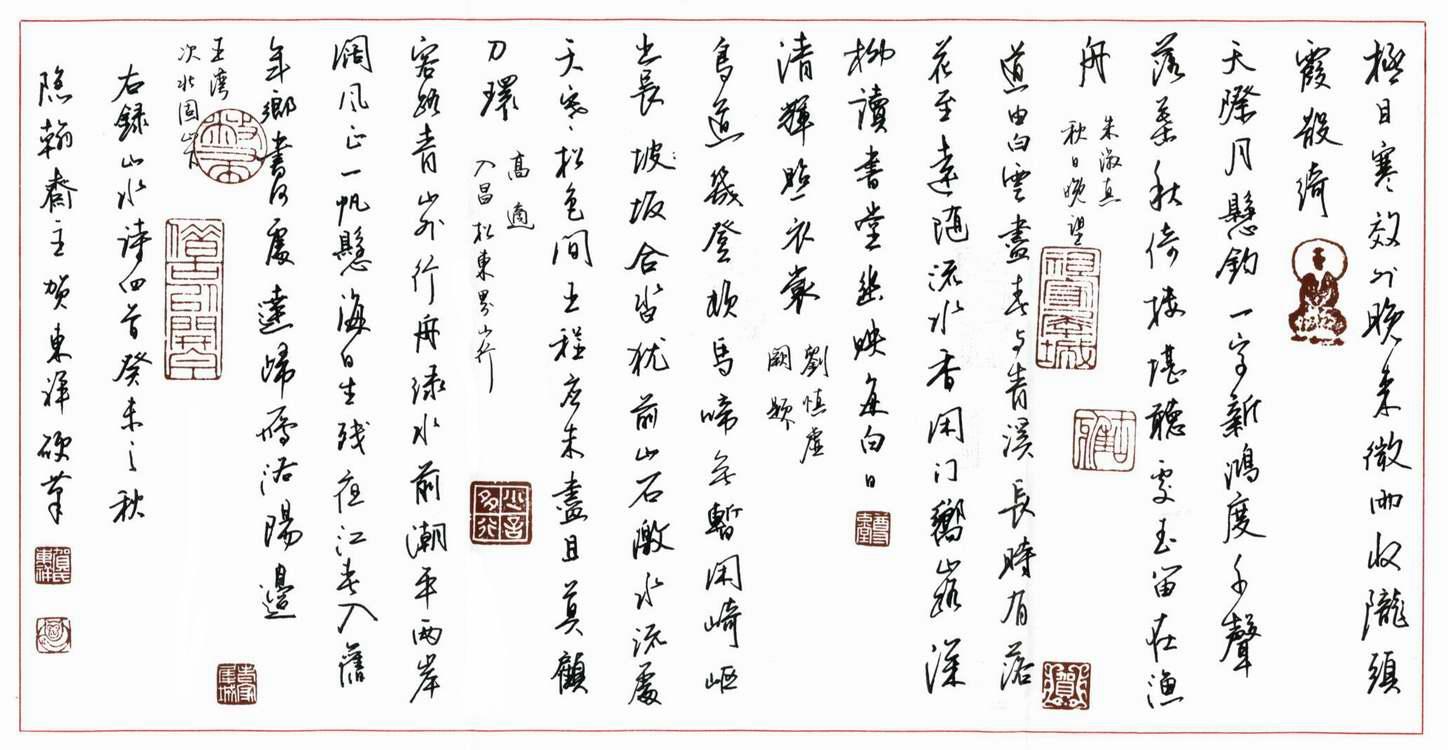 極目寒郊外晚來微雨收隴頭
霞散綺
天際月懸鈎一字新鴻度千聲
落葉秋倚樓堪聽處玉笛在漁
舟
朱淑真
秋日晚望
道由白雲盡春与青溪長時有落
花至遠隨流水香閑门嚮山路深
柳讀書堂幽映每白日
清輝照衣裳
劉慎虛
闕題
鳥道幾登頓馬啼無暫閑崎嶇
出長坡坂合沓犹前山石激水流處
天寒松色間王程应未盡且莫顧
刀環
高適
入昌松東界山行
客路青山外行舟绿水前潮平兩岸
闊风正一帆懸海日生殘夜江春入舊
年鄉書何處達歸雁洛陽邊
王灣
次北固山下
右錄山水诗四首癸未之秋
隐翰齋主贺東祥硬筆
賀氏
東祥